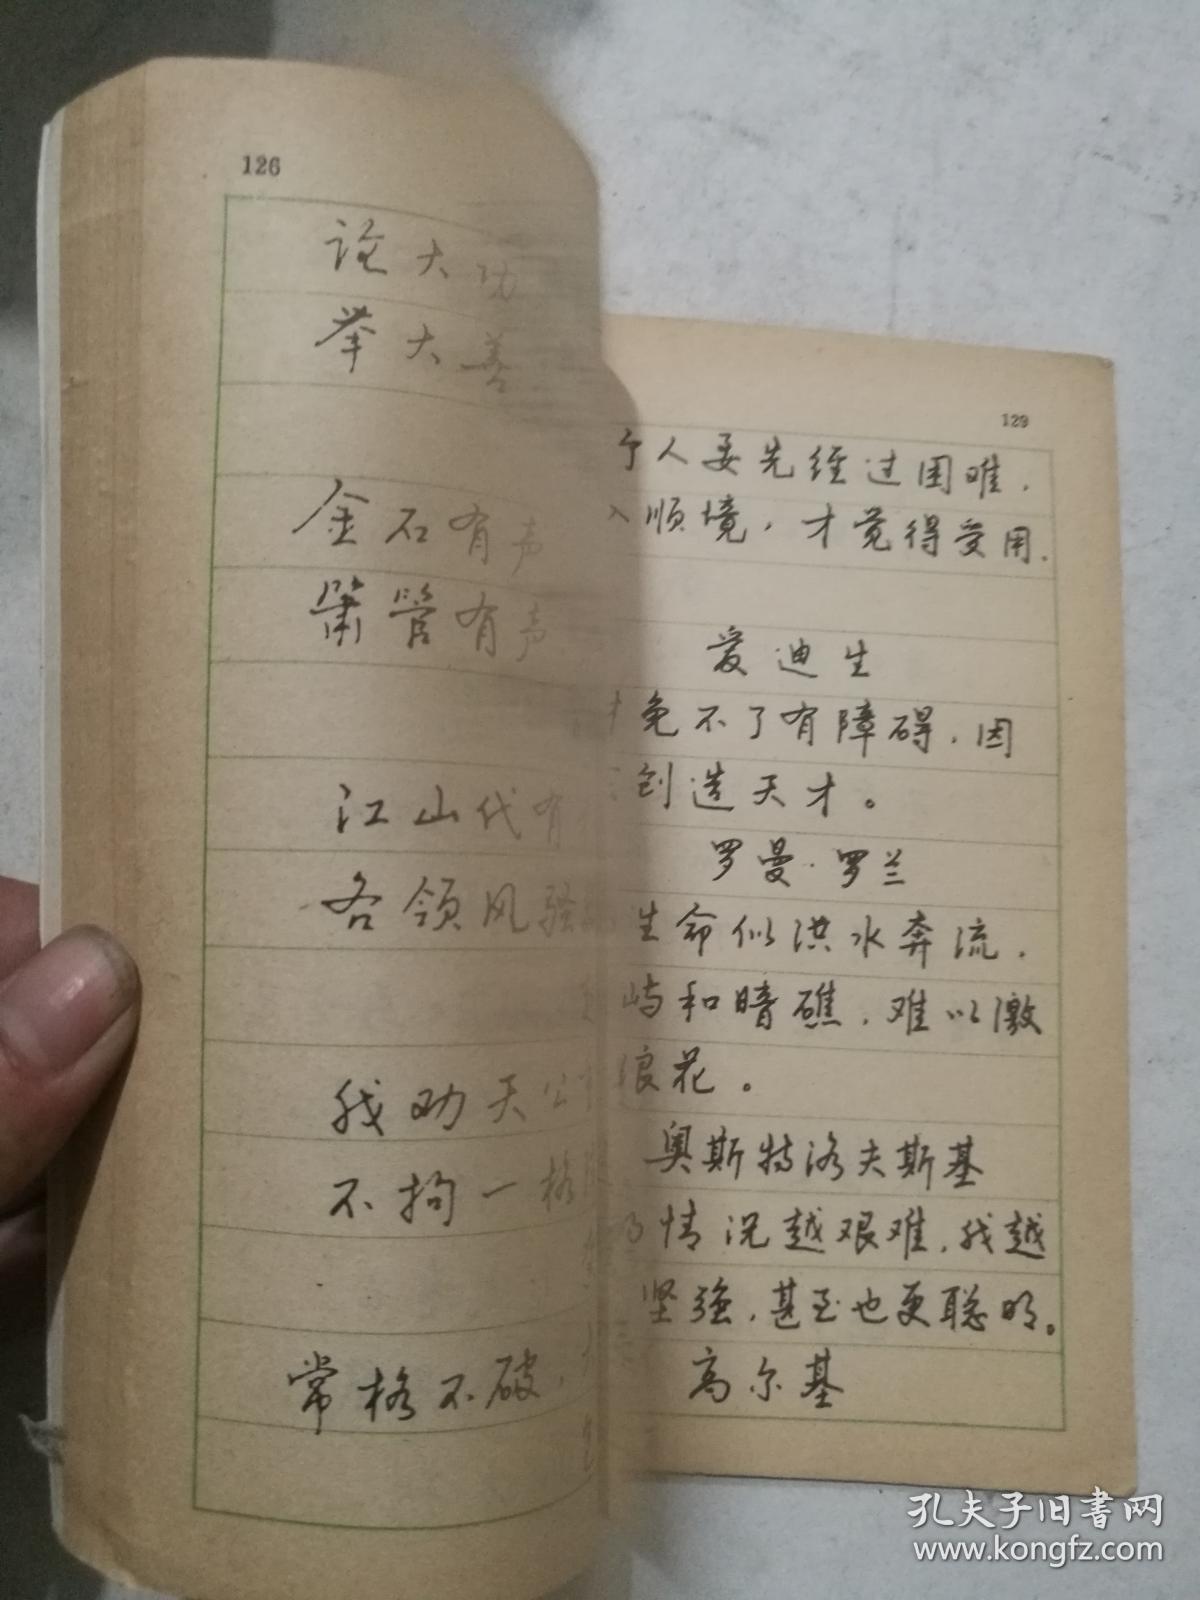 126
论大功
举大善
金石有声
箫管有声
江山代有
各领风骚
我劝天公
不拘一格
常格不破，
129
个人要先经过困难，
入顺境，才觉得受用.
爱迪生
免不了有障碍，因
创造天才。
罗曼·罗兰
生命似洪水奔流，
屿和暗礁，难以激
浪花。
奥斯特洛夫斯基
情况越艰难，我越
坚强，甚至也更聪明。
高尔基
孔夫子旧书网
www.kongfz.com